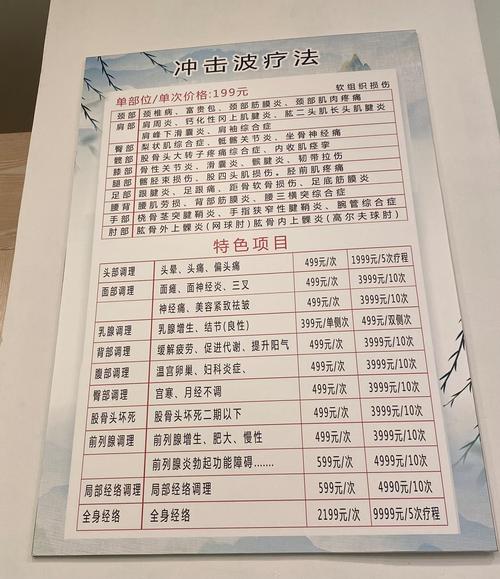 冲击波疗法
单部位/单次价格:199元 软组织损伤
颈部 颈椎病、富贵包、颈部筋膜炎、颈部肌肉疼痛
肩部 肩周炎、钙化性冈上肌腱炎、肱二头肌长头肌腱炎
肩峰下滑囊炎、肩袖综合症
臀部 梨状肌综合症、骶髂关节炎、坐骨神经痛
髋部 股骨头大转子疼痛综合症、内收肌痉挛
膝部 骨性关节炎、滑囊炎、髌腱炎、韧带拉伤
腿部 髂胫束损伤、股四头肌损伤。胫前肌疼痛
足部 跟腱炎、足跟痛、距骨软骨损伤、足底筋膜炎
腰背 腰肌劳损、背部筋膜炎、腰三横突综合症
手部 桡骨茎突腱鞘炎、手指狭窄性腱鞘炎、腕管综合症
肘部 肱骨外上髁炎(网球肘)肱骨内上髁炎(高尔夫球肘)
特色项目
头部调理 头晕、头痛、偏头痛 499元/次 1999元/5次疗程
面部调理 面瘫、面神经炎、三叉 499元/次 3999元/10次
神经痛、美容紧致祛皱 499元/次 3999元/10次
乳腺调理 乳腺增生、结节(良性) 399元/单侧次 499元/双侧次
背部调理 缓解疲劳、促进代谢、提升阳气 499元/次 3999元/10次
腹部调理 温宫卵巢、妇科炎症、 499元/次 3999元/10次
臀部调理 宫寒、月经不调 499元/次 3999元/10次
股骨头坏死 股骨头坏死二期以下 499元/次 3999元/10次
前列腺调理 前列腺增生、肥大、慢性 499元/次 3999元/10次
前列腺炎勃起功能障碍....... 599元/次 4999元/10次
局部经络调理 局部经络调理 599元/次 4990元/10次
全身经络 全身经络 2199元/次 9999元/5次疗程